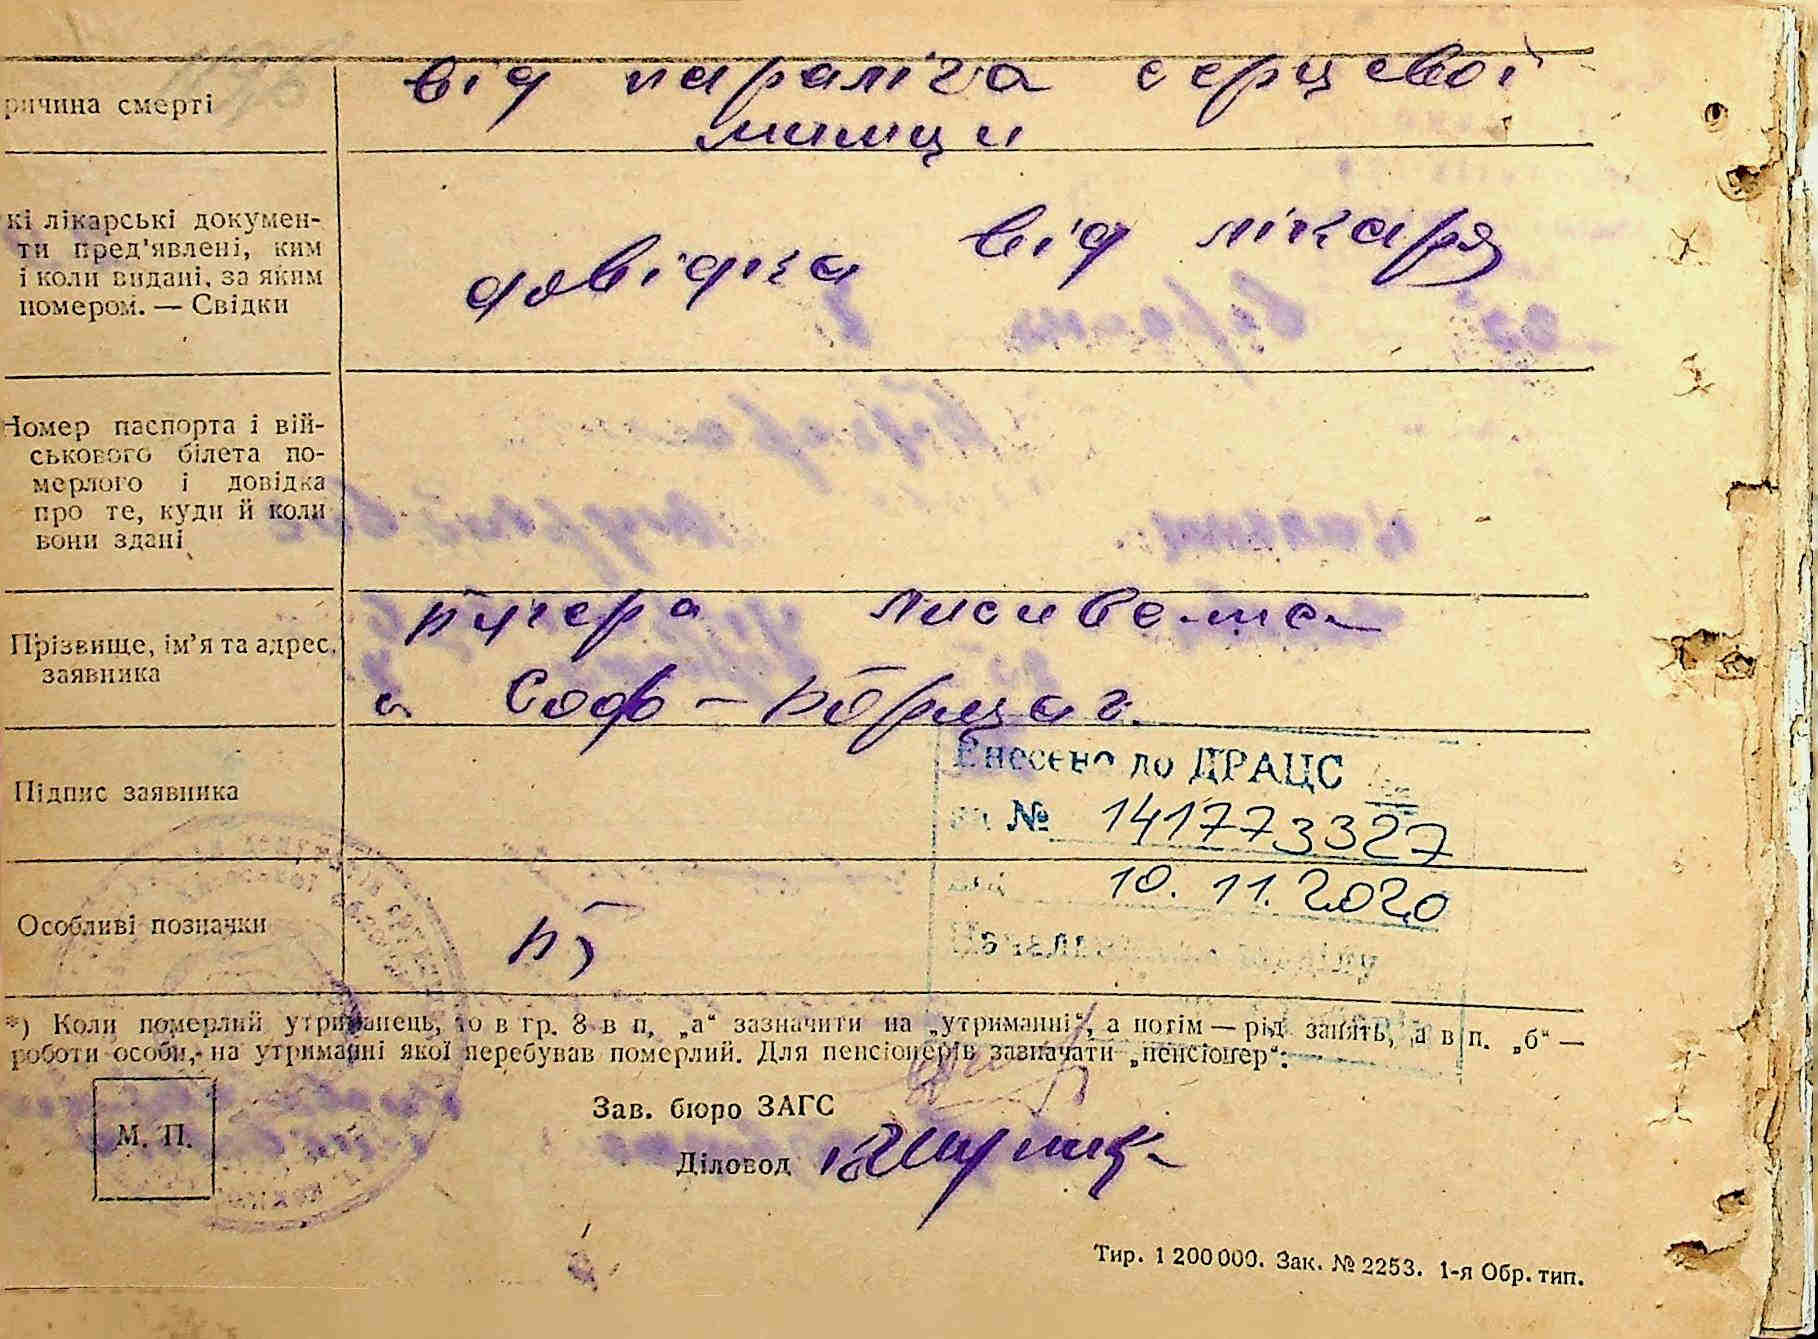 ричина смерті
від параліча серцевої
мишци
кі лікарські докумен-
ти пред'явлені, ким
і коли видані, за яким
номером. — Свідки
довідка від лікаря
Номер паспорта і вій-
ськового білета по-
мерлого і довідка
про те, куди й коли
вони здані
Прізвище, ім'я та адрес.
заявника
Кучера Лисивета
с Соф-Борщаг.
Підпис заявника
Внесено до ДРАЦС
за № 141773327
10.11.2020
Особливі позначки
*) Коли померлий утриманець, то в гр. 8 в п, „а“ зазначити на „утриманні“, а потім — рід занять, а в п. „б“ —
роботи особи, на утриманні якої перебував померлий. Для пенсіонерів зазначати „пенсіонер“:
М. П.
Зав. бюро ЗАГС
Діловод
Тир. 1 200 000. Зак. № 2253. 1-я Обр. тип.